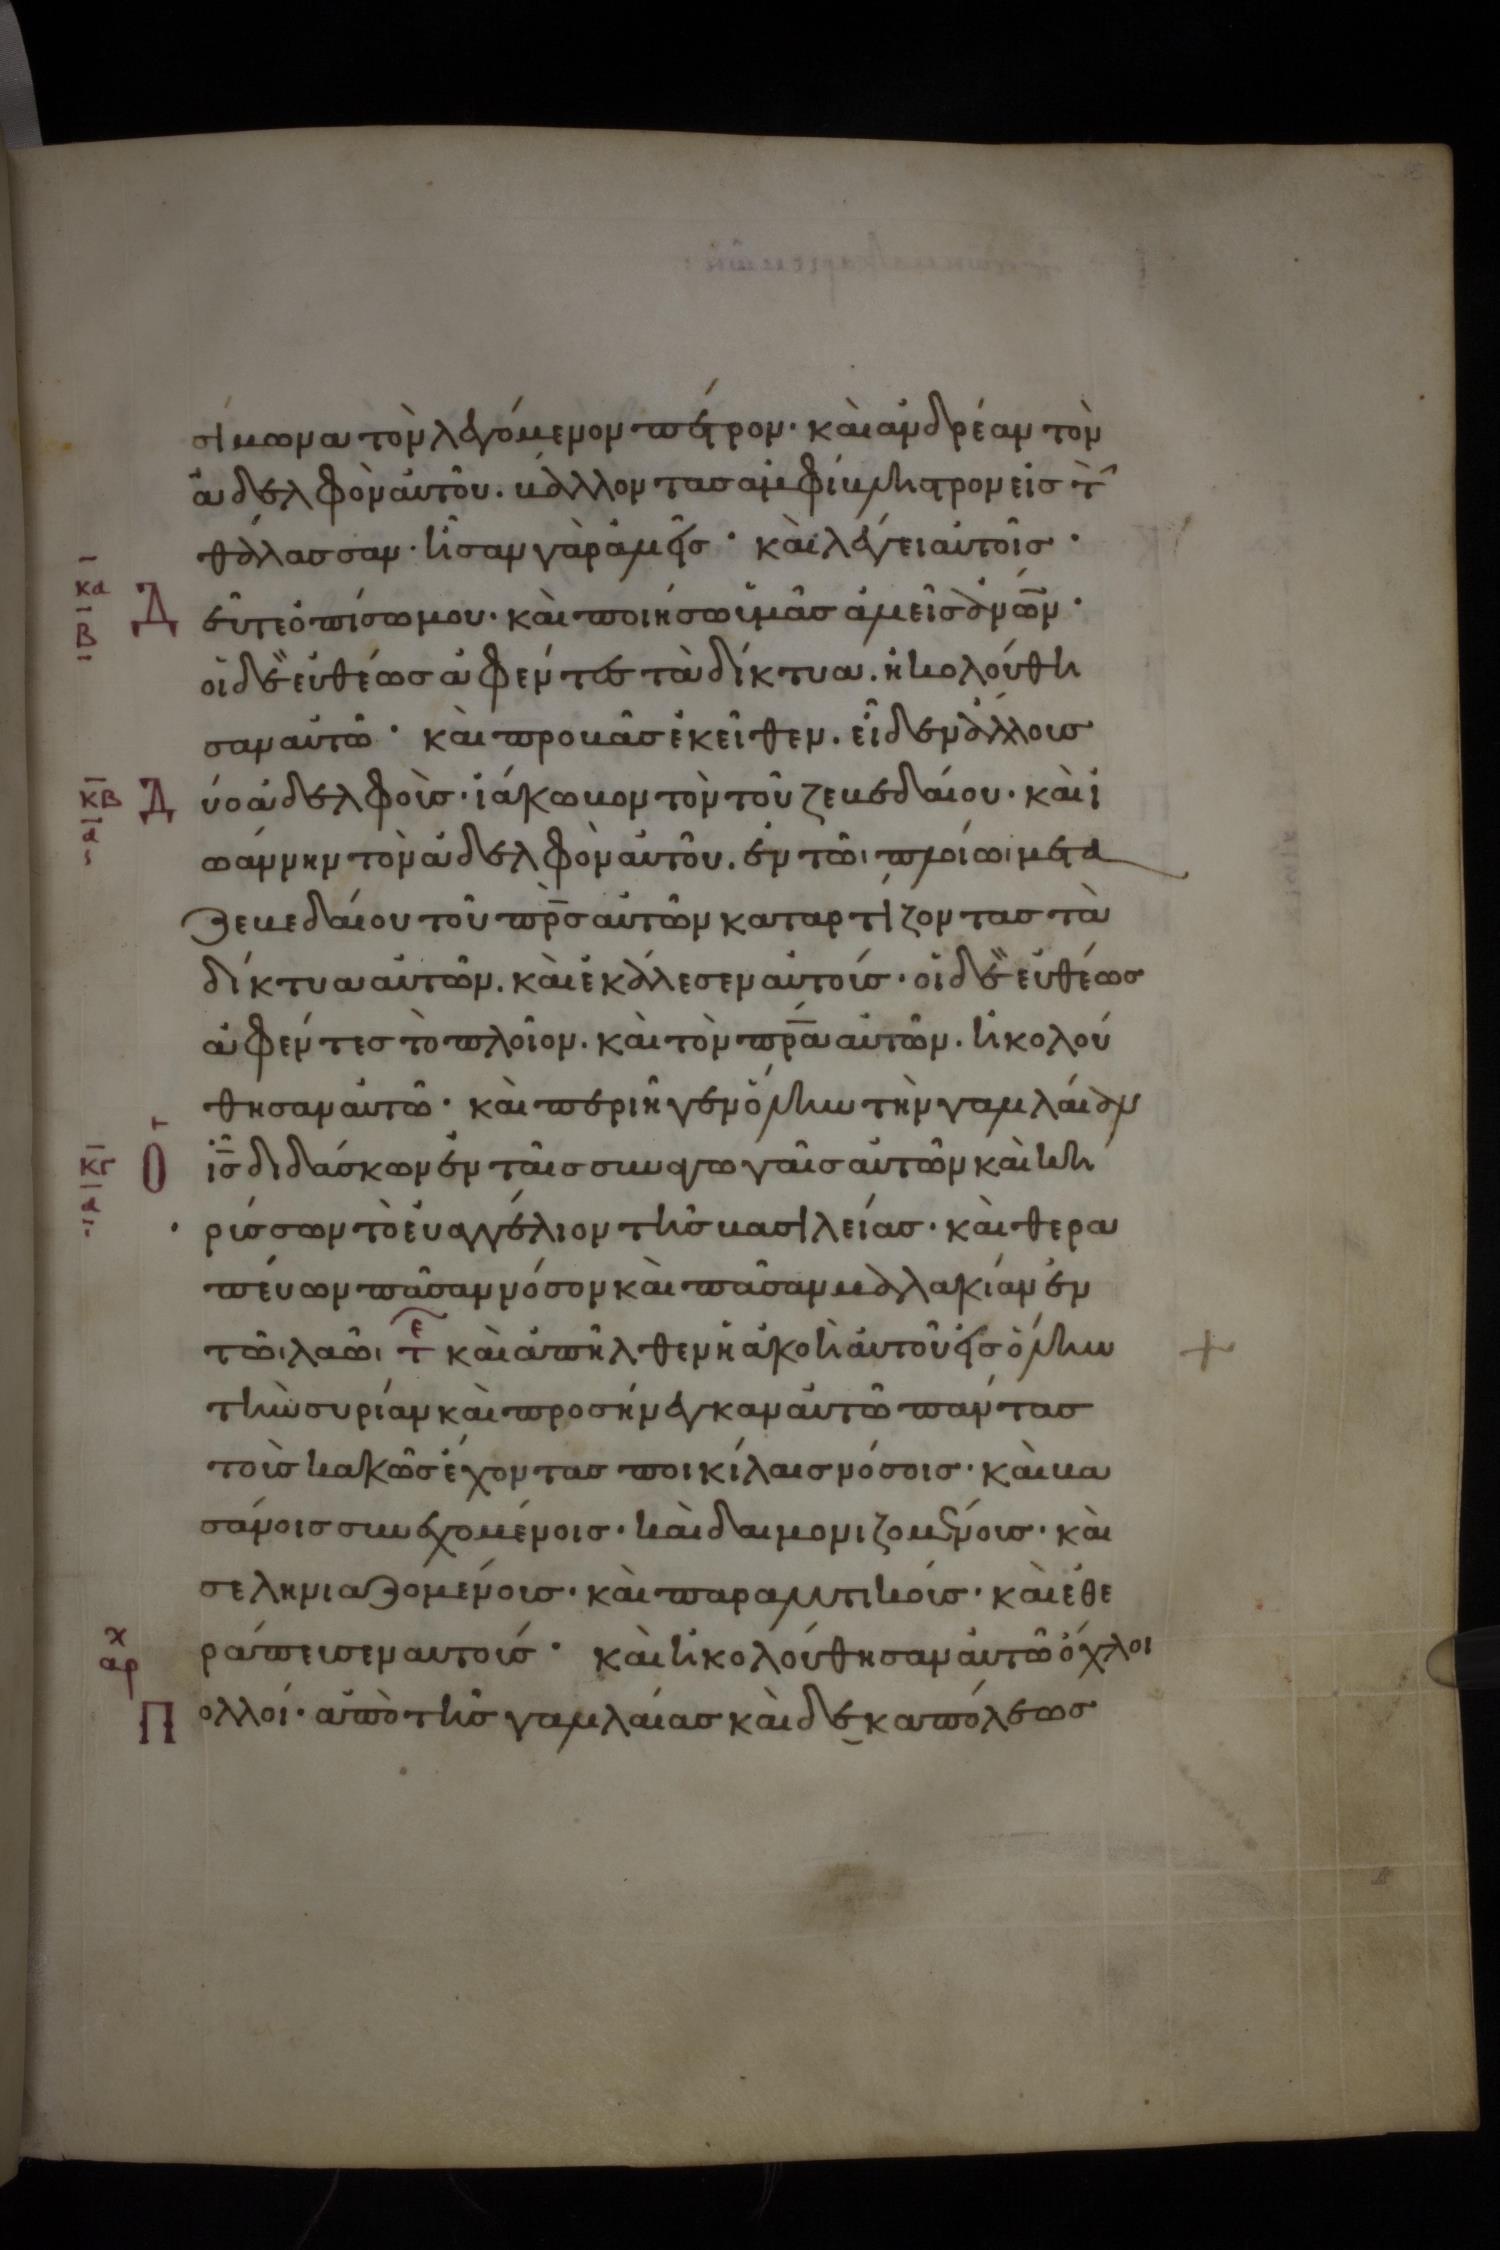 σίμωνα τὸν λεγόμενον πέτρον· καὶ ἀνδρέαν τὸν
ἀδελφὸν αὐτοῦ. βάλλοντας ἀμφίβληστρον εἰς τ̂
θάλασσαν· ἦσαν γὰρ ἁλιεῖς· καὶ λέγει αὐτοῖς·
κα
β
Δ εῦτε ὀπίσω μου· καὶ ποιήσω ὑμᾶς ἁλιεῖς ἀν̅ω̅ν̅·
οἱ δὲ εὐθέως ἀφέντες τὰ δίκτυα. ἠκολούθη
σαν αὐτῶ· καὶ προβὰς ἐκεῖθεν. εἶδεν ἄλλους
κβ
α
Δ ύο ἀδελφοὺς· ἰάκωβον τὸν τοῦ ζεβεδαίου· καὶ ἰ
ωάννην τὸν ἀδελφὸν αὐτοῦ. ἐν τῶι πλοίωι μετὰ
ζεβεδαίου τοῦ πρ̅ς αὐτῶν καταρτίζοντας τὰ
δίκτυα αὐτῶν. καὶ ἐκάλεσεν αὐτούς· οἱ δὲ εὐθέως
ἀφέντες τὸ πλοῖον. καὶ τὸν πρ̅α αὐτῶν. ἠκολού
θησαν αὐτῶ· καὶ περιῆγεν ὅλην τὴν γαλιλαίαν
τ
κγ
α
Ο ἰ̅ς̅ διδάσκων ἐν ταῖς συναγωγαῖς αὐτῶν καὶ κη
ρύσσων τὸ εὐαγγέλιον τῆς βασιλείας· καὶ θερα
πεύων πᾶσαν νόσον καὶ πᾶσαν μαλακίαν ἐν
τῶι λαῶι τε καὶ ἀπῆλθεν ἡ ἀκοὴ αὐτοῦ εἰς ὅλην
τὴν συρίαν καὶ προσήνεγκαν αὐτῶ πάντας
τοὺς κακῶς ἔχοντας ποικίλαις νόσοις· καὶ βα
σάνοις συνεχομένους· καὶ δαιμονιζομένους· καὶ
σεληνιαζομένους· καὶ παραλυτικούς· καὶ ἐθε
ράπευσεν αυτούς· καὶ ἠκολούθησαν αὐτῶ ὄχλοι
αρχ
Π ολλοί· ἀπὸ τῆς γαλιλαίας καὶ δεκαπόλεως